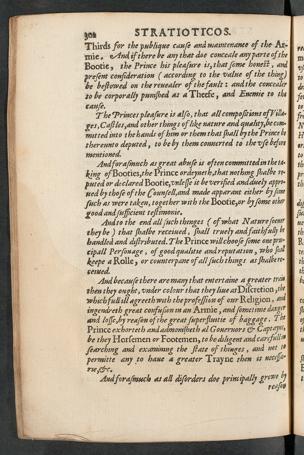 302 STRATIOTICOS.
Thirds for the publique cause and maintenance of the Ar-
mie, And if there be any that doe conceale any parte of the
Bootie, the Prince his pleasure is, that some honest, and
present consideration (according to the value of the thing)
be bestowed on the reuealer of the fault: and the concealer
to be corporally punished as a Theefe, and Enemie to the
cause.
The Princes pleasure is also, that all compositions of Villa-
ges, Castles, and other things of like nature and quality, be com-
mitted into the hands of him or them that shall by the Prince be
thereunto deputed, to be by them conuerted to the vse before
mentioned.
And forasmuch as great abuse is often committed in the ta-
king of Booties, the Prince ordeyneth, that nothing shalbe re-
puted or declared Bootie, vnlesse it be verified and duely appro-
ued by those of the Counsell, and made apparant either by some
such as were taken, together with the Bootie, or by some other
good and sufficient testimonie.
And to the end all such thinges (of what Nature soeuer
they be) that shalbe receiued, shall truely and faithfully be
handled and distributed. The Prince will choose some one prin-
cipall Personage, of good qualitie and reputation, who shall
keepe a Rolle, or counterpane of all such things as shalbe re-
ceiued.
And because there are many that entertaine a greater train
then they ought, vnder colour that they liue at Discretion, the
which full ill agreeth with the profession of our Religion, and
ingendreth great confusion in an Armie, and sometime danger
and losse, by reason of the great superfluitie of baggage. The
Prince exhorteth and admonisheth al Gouernors & Captayns,
be they Horsemen or Footemen, to be diligent and carefull in
searching and examining the state of thinges, and not to
permitte any to haue a greater Trayne then is necessa-
rie, &c.
And forasmuch as all disorders doe principally grewe by
reason